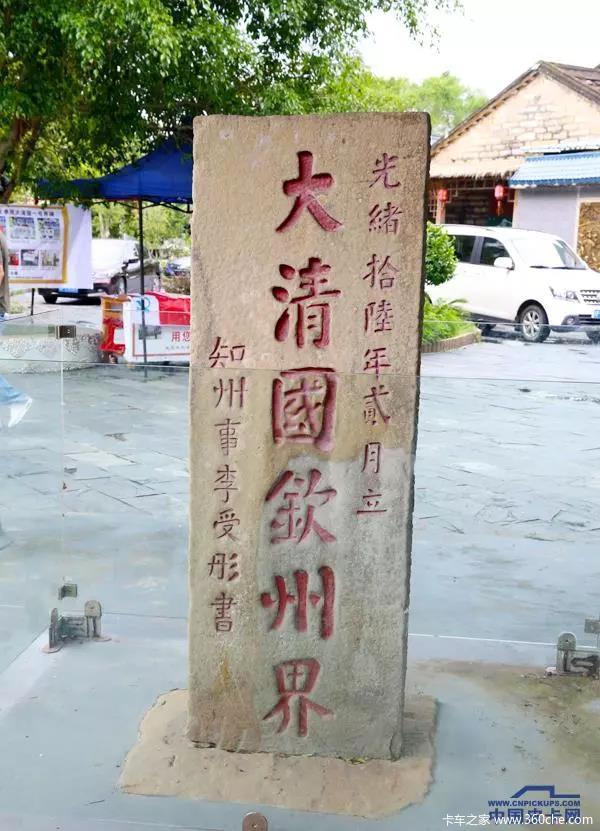 光緒拾陸年貳月立
大清國欽州界
知州事李受彤書
用您
WWW.CNPICKUPS.COM
中国皮卡网
卡车之家 www.360che.com